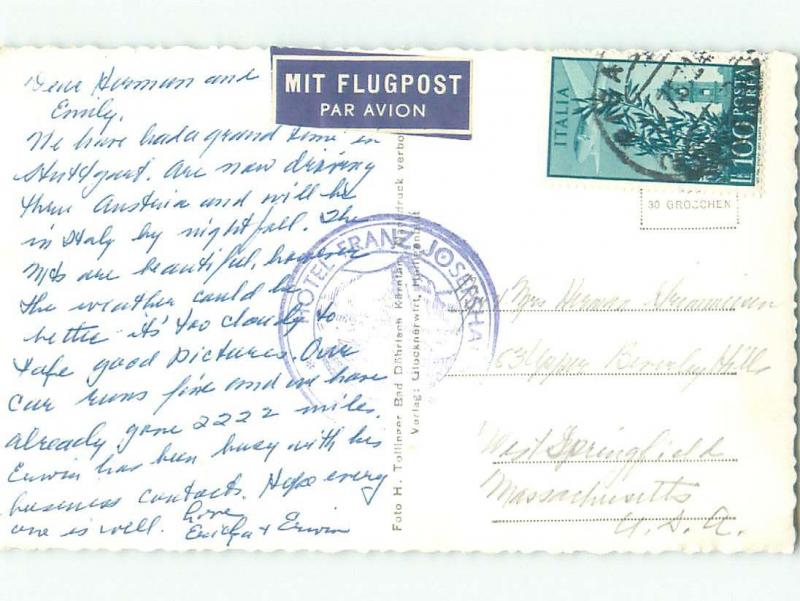 Dear Herman and
Emily,
We have had a grand time in
Stuttgart. Are now driving
thru Austria and will be
in Italy by nightfall. The
Mts are beautiful, however
the weather could be
better it's too cloudy to
take good pictures. Our
car runs fine and we have
already gone 2222 miles.
Erwin has been busy with his
business contacts. Hope every
one is well.
Love
Ericka + Erwin
MIT FLUGPOST
PAR AVION
ITALIA
L. 100 POSTA AEREA
30 GROSCHEN
HOTEL FRANZ JOSEFSHA
Foto H. Tollinger Bad Döllach Kärnten
druck verbo
Verlag: Glocknerwirt, Heiligenblut
Mrs Herman
63 Upper Beverley Hills
West Springfield
Massachusetts
U.S.A.